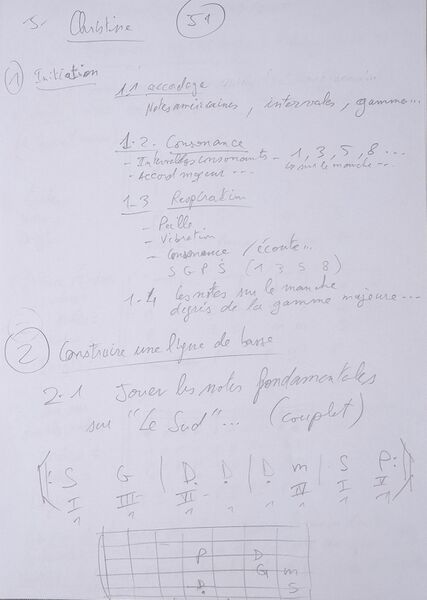 S. Christine 51
1 Initiation
1.1 accordage
Notes américaines, intervales, gamme...
1.2. Consonance
- Intervalles consonants - 1, 3, 5, 8 ...
- Accord majeur ... les sur le manche ...
1-3 Respiration
- Paille
- Vibration
- Consonance / écoute...
S G P S (1 3 5 8)
1-4 Les notes sur le manche
degrés de la gamme majeure...
2 Construire une ligne de basse
2.1 Jouer les notes fondamentales
sur "Le Sud"... (couplet)
S G | D D | D m | S P :
I III VI IV I V
P D
G m
D S